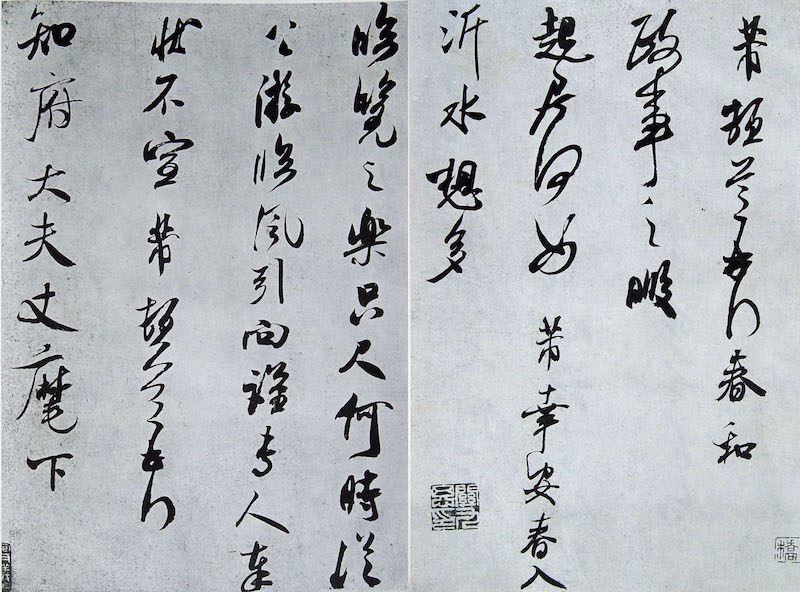 芾頓首再拜春和
政事之暇
起居何如 芾幸安春入
沂水想多
臨覽之樂只尺何時從
公游臨風引向謹專人奉
狀不宣 芾頓首再拜
知府大夫丈麾下